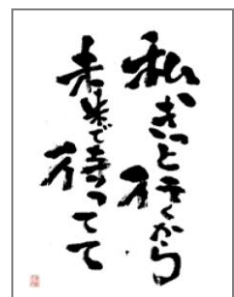 私、きっと行くから
未来で待ってて